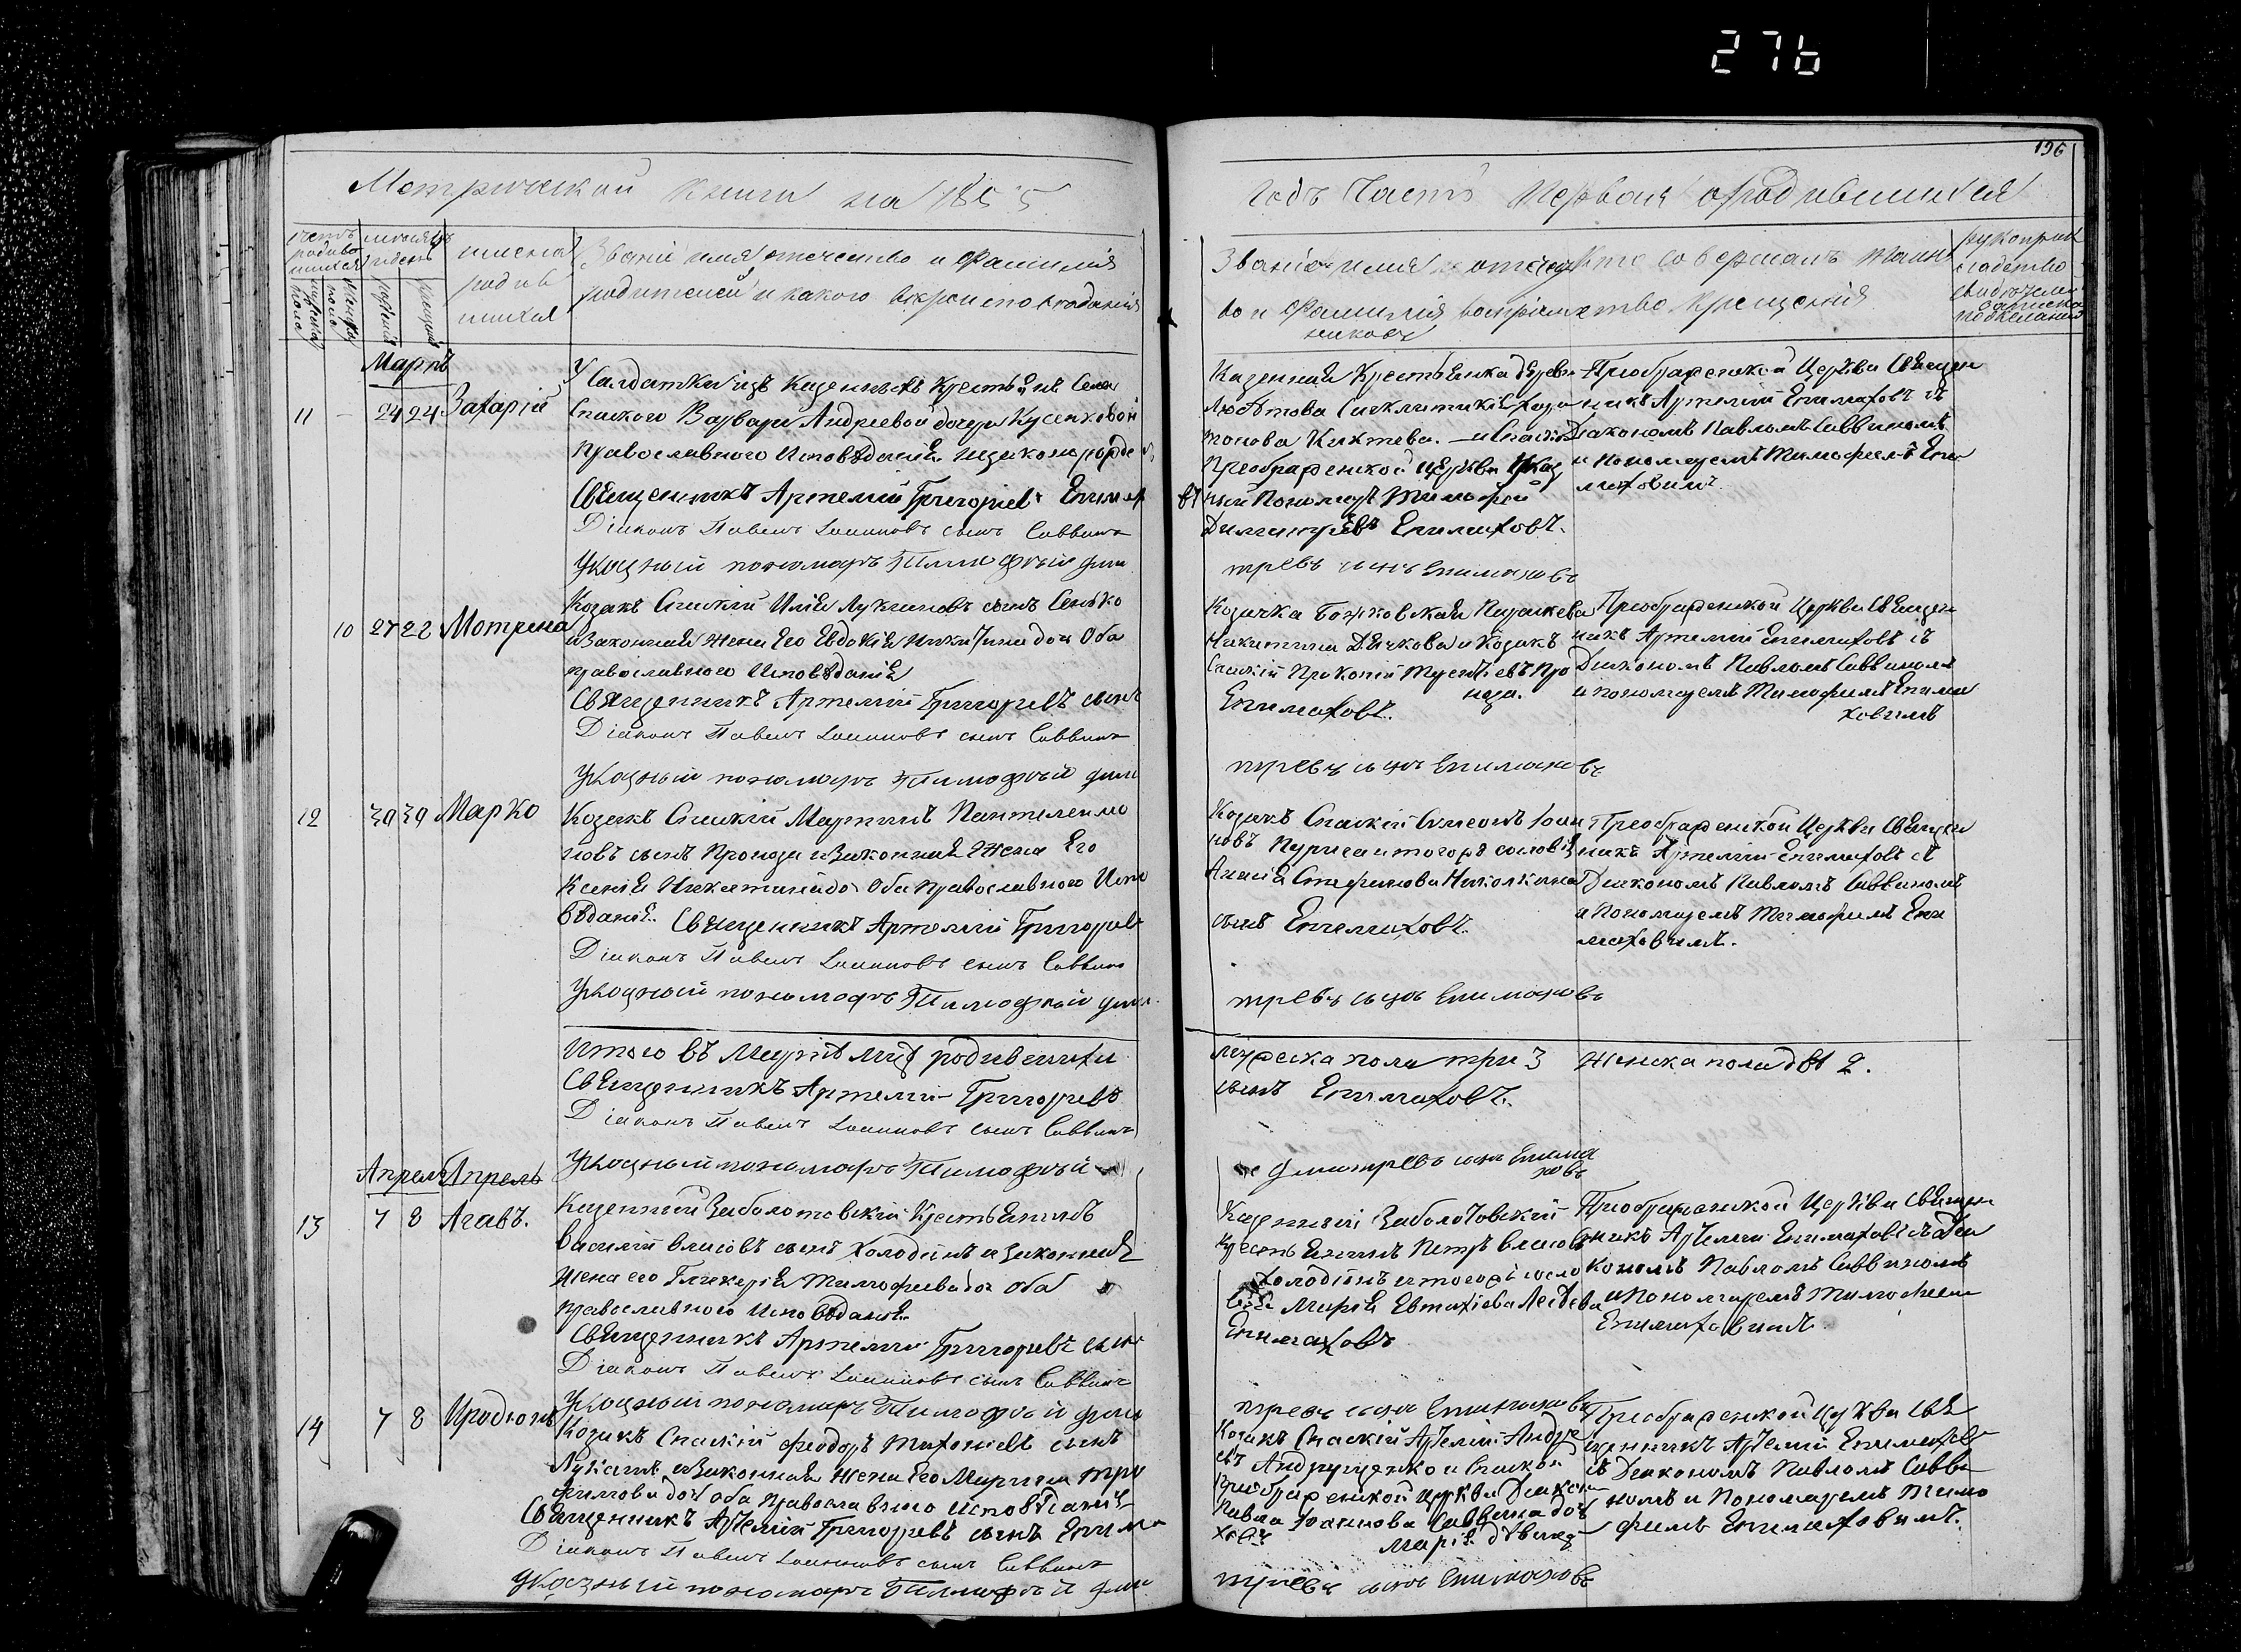 276
196
Метрической книги на 1855
годъ Часть Первая о родившихся
счетъ родившихся
мужеска пола
женска пола
месяцъ и день
рожденія
крещенія
имена родившихся
Званіе имя отечество и фамилія
родителей и какого вероисповеданія
Званіе имя и отечест
во и фамилія воспріем
никовъ
кто совершалъ таин
ство крещенія
рукоприк
ладство
свидетелей
записки
по желанію
Мартъ
11 – 24 24 Захарій
У Салдатки изъ Казенныхъ Крестьянъ Села
Спаского Варвары Андреевой дочери Кусенковой
православного Исповѣданія незаконорожден
Священникъ Артемій Григоріевъ Епимах
Діаконъ Павелъ Іоанновъ сынъ Саввинъ
Указный пономарь Тимофѣй Дми
Казенная Крестьянка деревни
Кихтева. – и Спаской
Преображенской церкви Указ
ный Пономарь Тимофей
Димитріевъ Епимаховъ.
тревъ сынъ Епимаховъ
Преображенской Церкви Священ
никъ Артемій Епимаховъ съ
Діакономъ Павломъ Саввиномъ
и Пономаремъ Тимофеемъ Епи
маховимъ.
10 27 28 Мотрена
Козакъ Спаскій Илія Лукьяновъ сынъ Сенько
и Законная жена Его Евдокія Никитина доч Оба
православного Исповѣданія
Священникъ Артемій Григоріевъ сынъ
Діаконъ Павелъ Іоанновъ сынъ Саввинъ
Указный пономарь Тимофѣй Дми
Козачка Божковская Параскева
Никитина Дячкова и Козакъ
Спаскій Прокопій Про
ноза.
Епимаховъ.
тревъ сынъ Епимаховъ
Преображенской Церкви Священ
никъ Артемій Епимаховъ съ
Діакономъ Павломъ Саввиномъ
и пономаремъ Тимофеемъ Епима
ховимъ
12 30 30 Марко
Козакъ Спаскій Мартинъ Пантелеимо
новъ сынъ Пронози и Законная Жена Его
Ксенія Никитина до Оба Православного Испо
вѣданія. Священникъ Артемій Григоріевъ
Діаконъ Павелъ Іоанновъ сынъ Саввинъ
Указный пономарь Тимофѣй Дми
Козакъ Спаскій Симеонъ Іоан
новъ Пуриса и того же сословія
Анасія Стефанова Николкина
сынъ Епимаховъ.
тревъ сынъ Епимаховъ
Преображенской Церкви Священ
никъ Артемій Епимаховъ съ
Діакономъ Павломъ Саввиномъ
и Пономаремъ Тимофеемъ Епи
маховимъ.
Итого въ Мартѣ родившихся
Священникъ Артемій Григоріевъ
Діаконъ Павелъ Іоанновъ сынъ Саввинъ
Указный пономарь Тимофѣй
мужеска пола три 3
женска пола двѣ 2.
сынъ Епимаховъ.
Дмитревъ сынъ Епима
ховъ
Апрель Апрель
13 7 8 Агавъ.
Казенный Заболотовскій Крестьянинъ
Василій Власовъ сынъ Холодинъ и Законная
Жена его Гликерія Тимофеева доч оба
Православного Исповѣданія.
Священникъ Артемій Григоріевъ сынъ
Діаконъ Павелъ Іоанновъ сынъ Саввинъ
Указный пономарь Тимофѣй Дми
Казенній Заболотовскій
Крестьянинъ Петръ Власовъ
Холодинъ и того же сосло
вія Марія Евтахіева
Епимаховъ
тревъ сынъ Епимаховъ
Преображенской Церкви Священ
никъ Артемій Епимаховъ съ Діа
кономъ Павломъ Саввиномъ
и Пономаремъ Тимофеем
Епимаховимъ.
14 7 8 Иродіонъ
Козакъ Спаскій Феодоръ Тихоніевъ сынъ
Лукашъ и Законная жена Его Марина Тро
фимова доч Оба Православного Исповѣданія
Священникъ Артемій Григоріевъ сынъ Епима
Діаконъ Павелъ Іоанновъ сынъ Саввинъ
Указный пономарь Тимофѣй Дми
Козакъ Спаскій Артемій Андре
евъ Андрущенко и Спаской
Преображенской Церкви Діакона
Павла Іоаннова Саввина доч
ховъ Марія дѣвица
тревъ сынъ Епимаховъ
Преображенской Церкви Свя
щенникъ Артемій Епимаховъ
съ Діакономъ Павломъ Савви
номъ и Пономаремъ Тимо
феимъ Епимаховимъ.